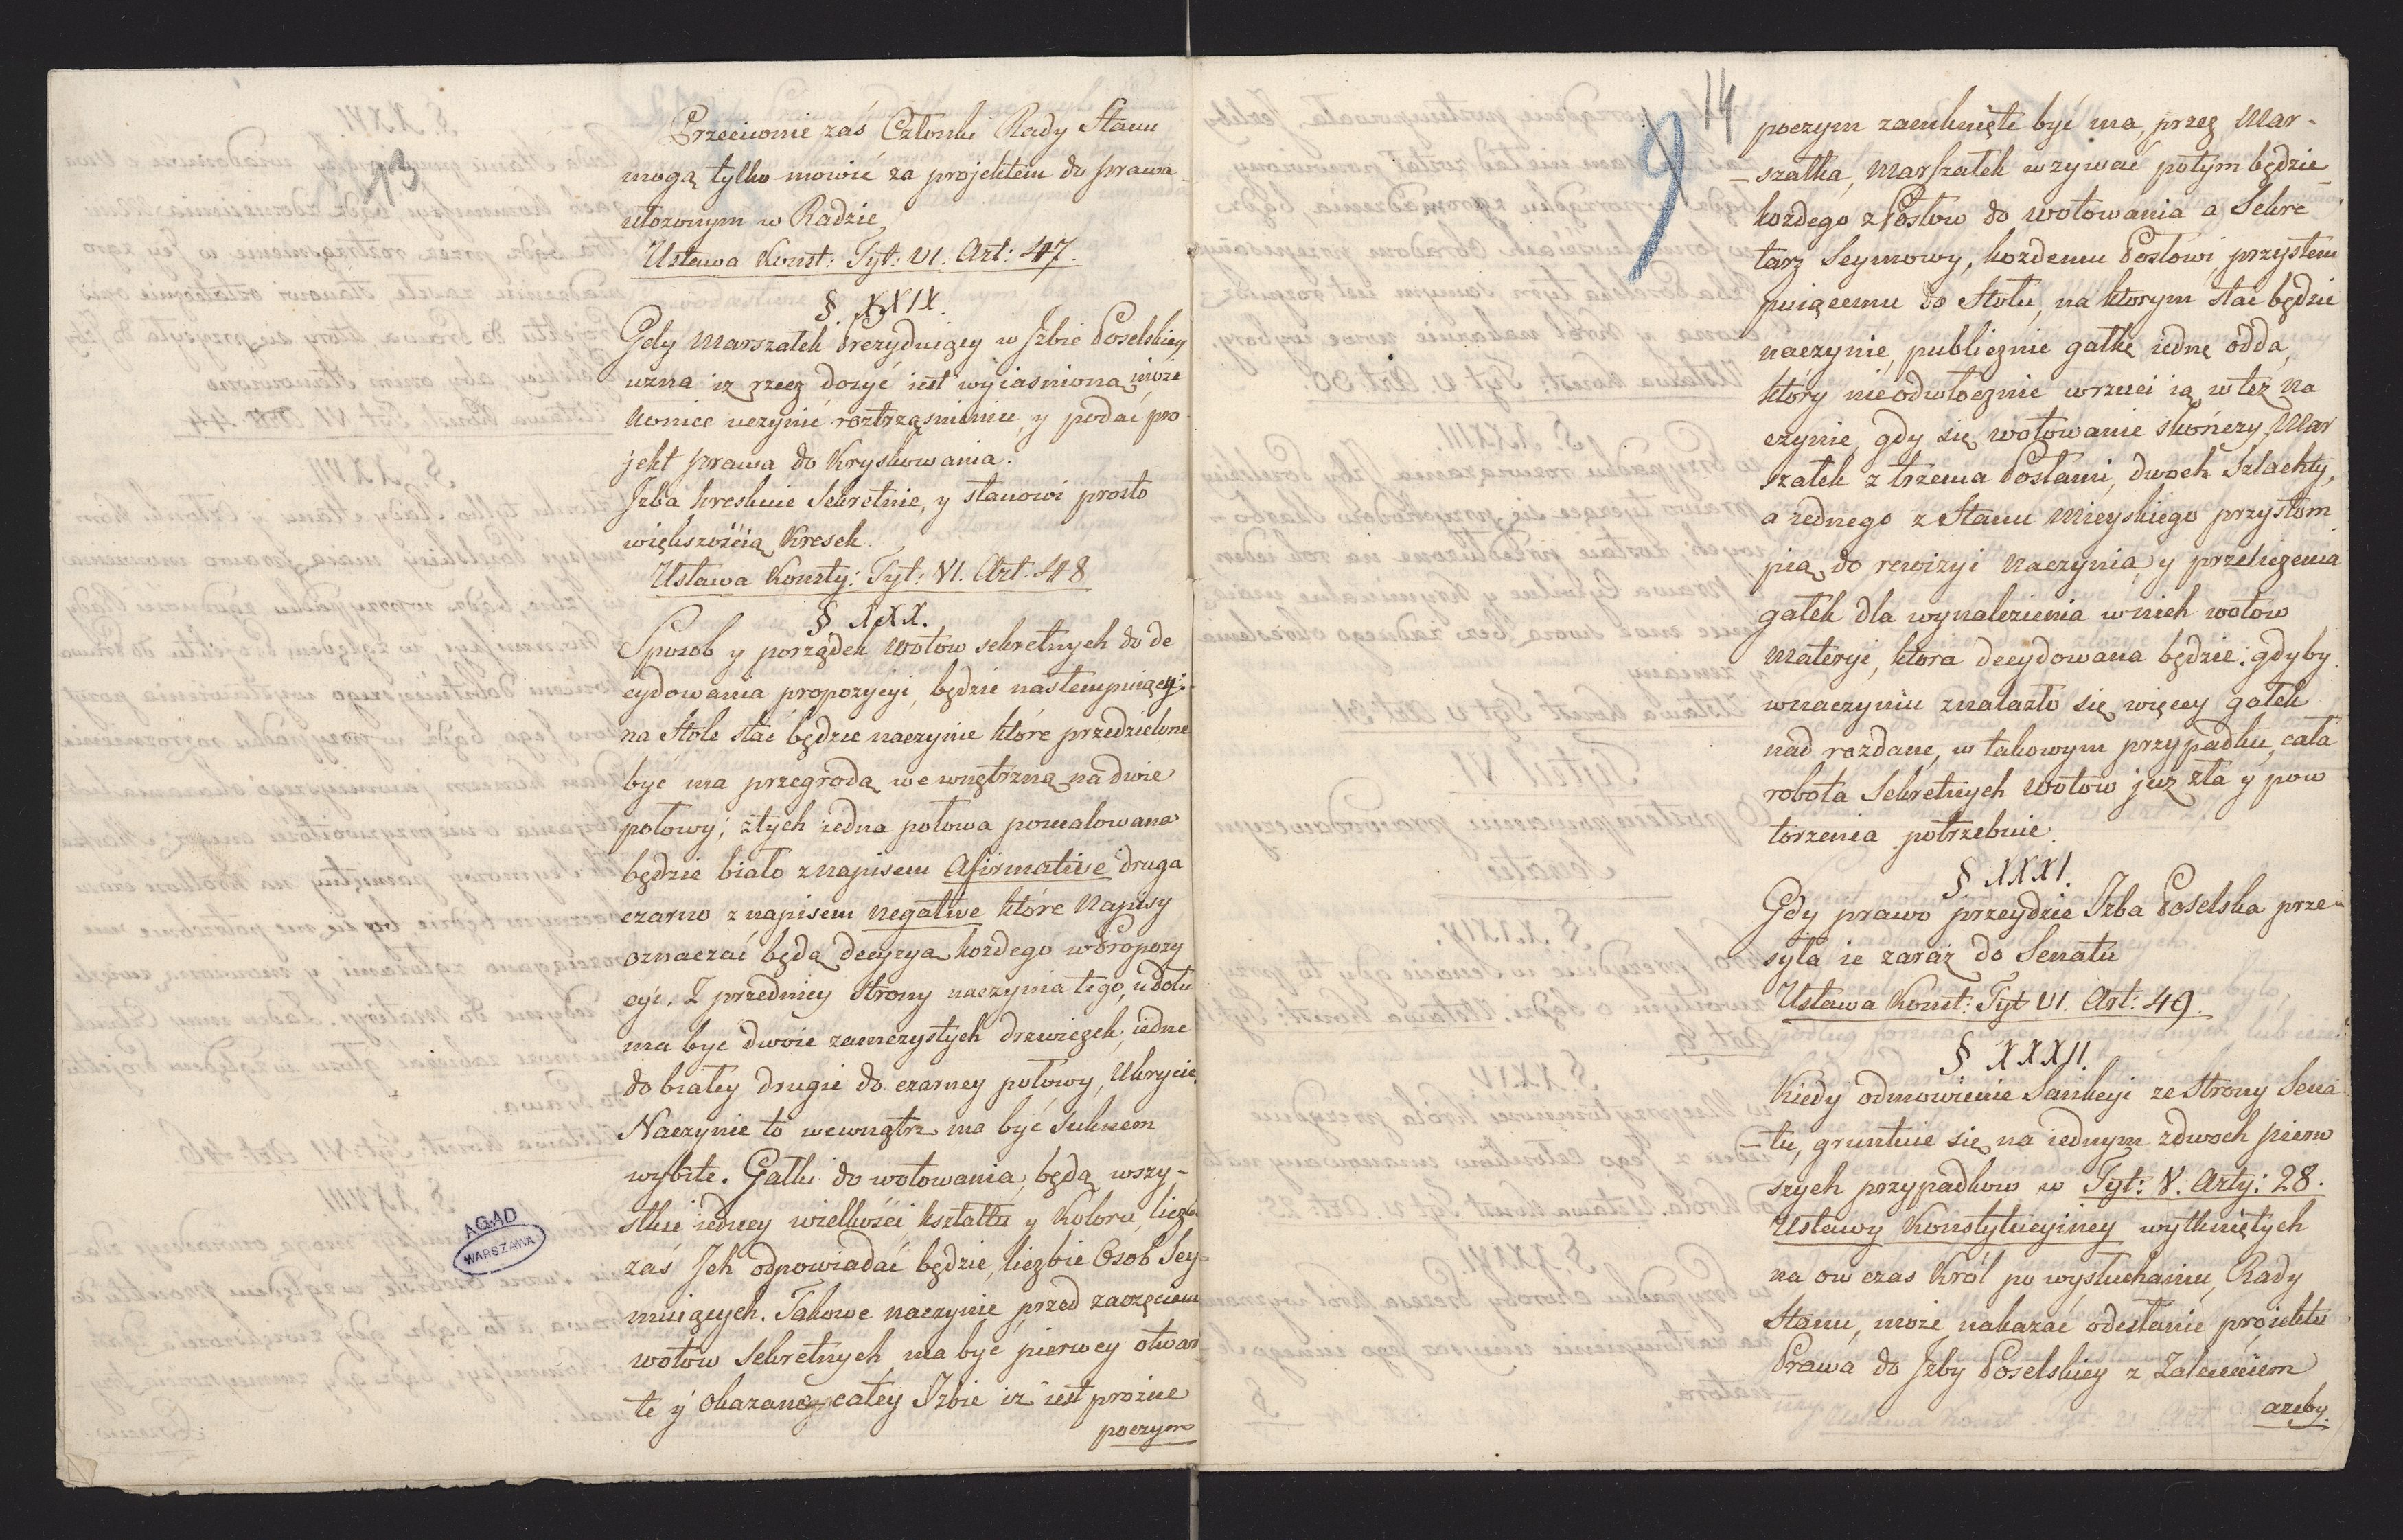 13
Przeciwnie zaś Członki Rady Stanu
mogą tylko mowić za projektem do prawa
ułozonym w Radzie,
Ustawa Konst: Tyt: VI. Art: 47.
§ XXIX.
Gdy Marszałek Prezyduiący w Jzbie Poselskiey
uzna iz rzecz dosyć iest wyiasniona, może
konice uczynić roztrząsnieniu, y podać pro
jekt prawa do Kryskowania.
Jzba kreskuie Sekretnie, y stanowi prosto
większośćią Kresek.
Ustawa Konsty: Tyt: VI. Art. 48
§ XXX.
Sposob y porządek Wotow sekretnych do de
cydowania propozycyi, będzie nastempuiący:
na Stole stać będzie naczynie które przedzielone
byc ma przegrodą we wnętrzną na dwie
połowy; z tych iedna połowa pomalowana
będzie biało z napisem Afirmative druga
czarno z napisem negative które Napisy
oznaczać będą decyzya kozdego w Propozy
cyi. Z przedniey strony naczynia tego, u dołu
ma byc dwoie zamczystych drzwiczek, iedne
do białey drugie do czarney połowy, Ukrycie
Naczynie to wewnątrz ma być Suknem
wybite. Gałki do wotowania, będą wszy-
stkie iedney wielkości kształtu y Koloru, liczba
zaś Jch odpowiadać będzie, liczbie Osob Sey-
muiących. Takowe naczynie, przed zaczęciem
wotow Sekretnych ma być pierwey otwar
te y okazane całey Jzbie iz iest prożne
poczym
AGAD
WARSZAWA
14
9
poczym zamknięte być ma, przez Mar-
szałka, Marszałek wzywać potym będzie
kozdego z Posłow do wotowania a Sekre
tarz Seymowy, kozdemu Posłowi, przystem
puiącemu do Stołu, na ktorym stac będzie
naczynie, publicznie gałkę iednę odda,
który nieodwłocznie wrzuci ią w tez na
czynie, gdy się wotowanie skończy Mar
szałek z trzema Posłami, dwoch Szlachty,
a iednego z Stanu Mieyskiego przystom
pią do rewizyi Naczynia y przeliczenia
gałek dla wynalezienia w nich wotow
Materyi, ktora decydowana będzie: gdyby
w naczyniu znalazło się więcey gałek
nad rozdane, w takowym przypadku cała
robota Sekretnych Wotow juz zła y pow
torzenia potrzebuie.
§. XXXI.
Gdy prawo przeydzie Izba Poselska prze-
syła ie zaraz do Senatu
Ustawa Konst: Tyt VI. Art: 49.
§ XXXII.
Kiedy odmowienie Sankcyi ze Strony Sena
tu, gruntuie się na iednym z dwoch pierw
szych przypadkow w Tyt: V. Arty: 28.
Ustawy Konstytucyiney wytkniętych
na ow czas Król po wysłuchaniu, Rady
Stanu, może nakazać odesłanie projektu
Prawa do Jzby Poselskiey z Zaleceniem
azeby.